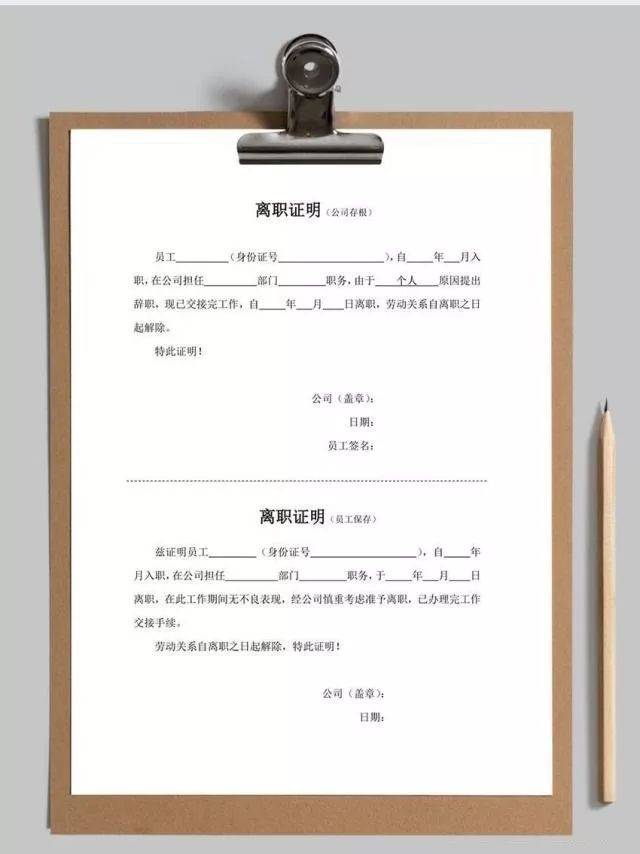 离职证明（公司存根）
员工_________（身份证号___________________），自_____年___月入
职，在公司担任_________部门_________职务，由于___个人___原因提出
辞职，现已交接完工作，自_____年___月____日离职，劳动关系自离职之日
起解除。
特此证明！
公司（盖章）：
日期：
员工签名：
离职证明（员工保存）
兹证明员工_________（身份证号___________________），自_____年
月入职，在公司担任_________部门_________职务，于_____年___月____日
离职，在此工作期间无不良表现，经公司慎重考虑准予离职，已办理完工作
交接手续。
劳动关系自离职之日起解除，特此证明！
公司（盖章）：
日期：